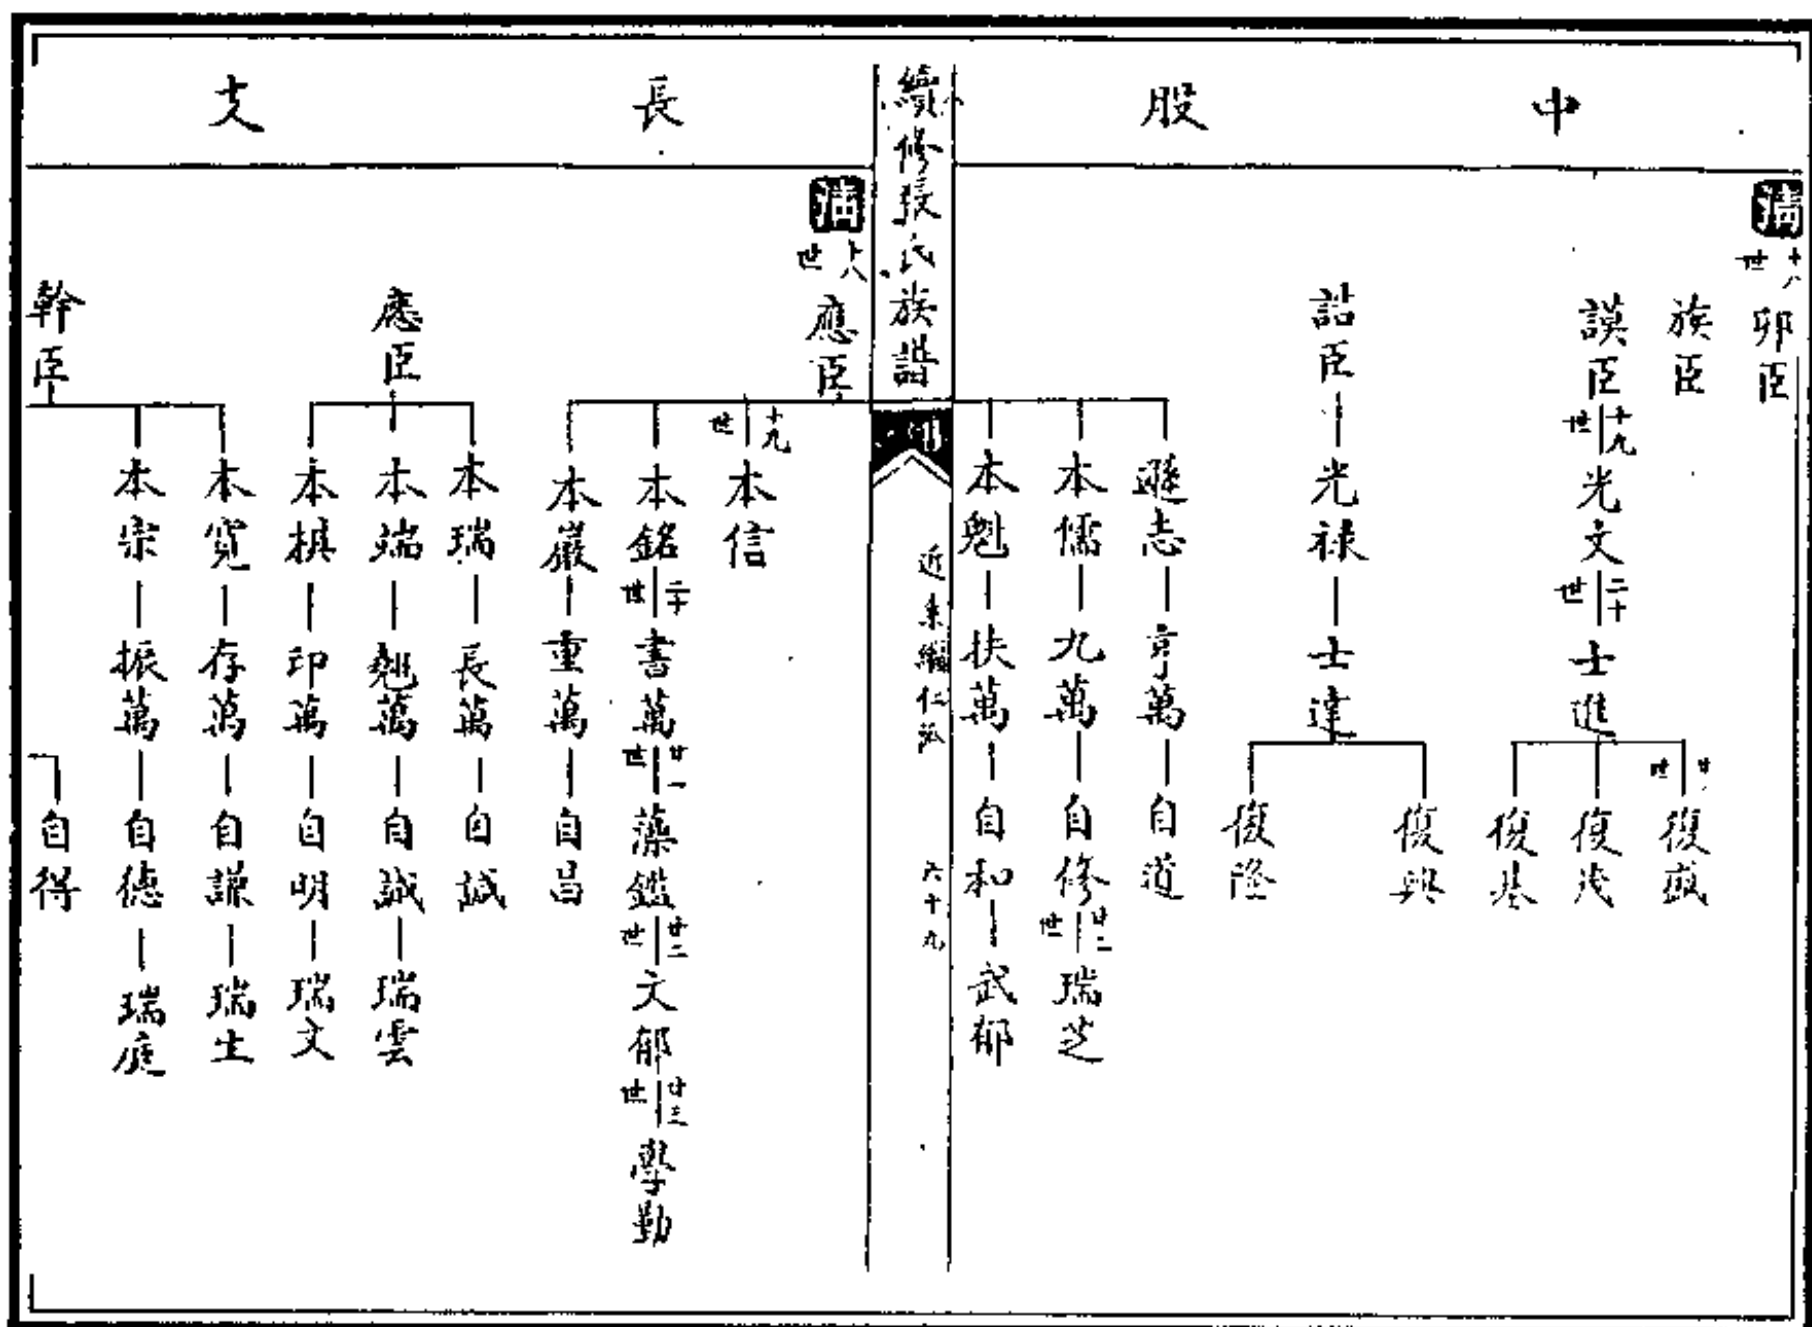 中股
清
十八世
卯臣
族臣
謨臣
十九世
光文
二十世
士進
復盛
復茂
復基
誥臣
光祿
士達
復興
復隆
遜志
亨萬
自道
本儒
九萬
自修
廿二世
瑞芝
本魁
扶萬
自和
武郁
續修張氏族譜
六十九
長支
清
十八世
應臣
十九世
本信
本銘
二十世
書萬
廿一世
藻鑑
廿二世
文郁
廿三世
學勤
本嚴
重萬
自昌
應臣
本瑞
長萬
自誠
本端
翹萬
自誠
瑞雲
本棋
印萬
自明
瑞文
幹臣
本寬
存萬
自謙
瑞生
本宗
振萬
自德
瑞庭
自得